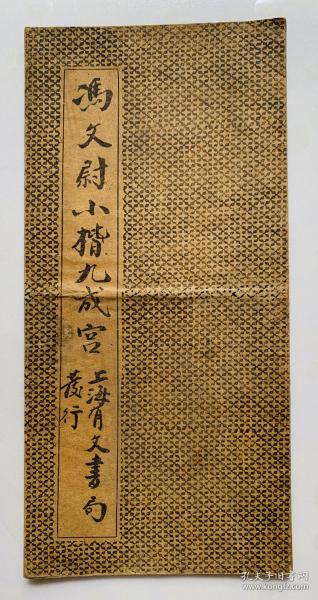 馮文尉小揩九成宮
上海有文書局
發行
孔夫子旧书网
www.kongfz.com